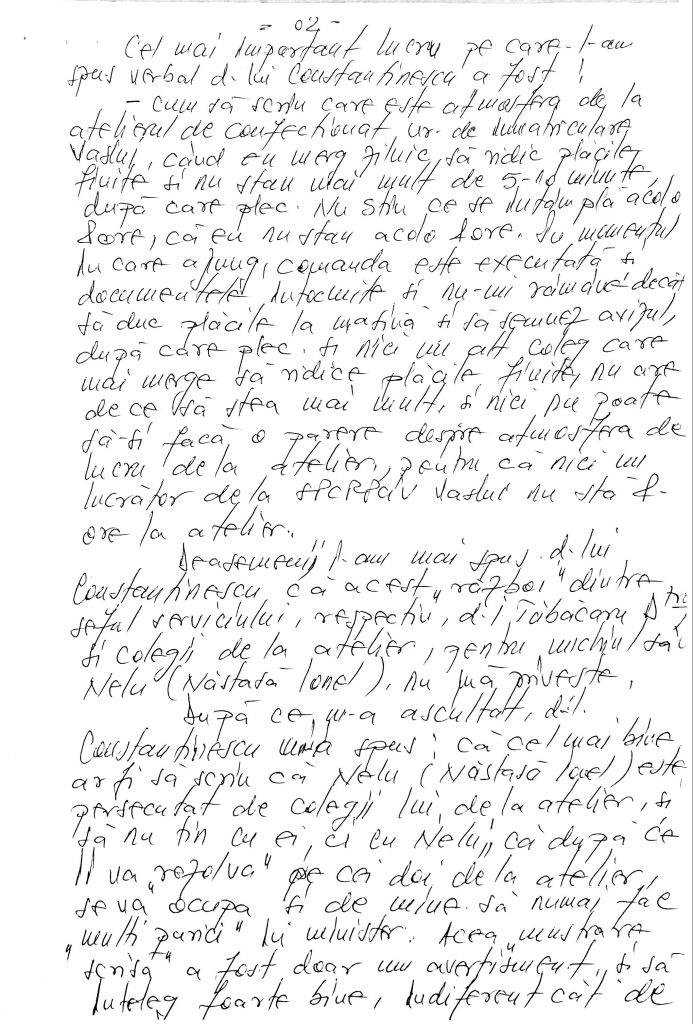 - 02 -
Cel mai important lucru pe care l-am
spus verbal d-lui Constantinescu a fost:
- cum să scriu care este atmosfera de la
atelierul de confecționat nr. de înmatriculare,
Vaslui, când eu merg zilnic, să ridic plăcile,
finite și nu stau mai mult de 5-10 minute,
după care plec. Nu știu ce se întâmplă acolo
8 ore, că eu nu stau acolo 8 ore. În momentul
în care ajung, comanda este executată și
documentele întocmite și nu-mi rămâne decât
să duc plăcile la mașină și să semnez avizul,
după care plec. Și nici un alt coleg care
mai merge să ridice plăcile finite, nu are
de ce să stea mai mult, și nici nu poate
să-și facă o părere despre atmosfera de
lucru de la atelier, pentru că nici un
lucrător de la SPCRPCIV Vaslui nu stă 8-
ore la atelier.
Deasemenii, l-am mai spus d-lui
Constantinescu, că acest „război" dintre
șeful serviciului, respectiv, d-l Tăbăcaru
și colegii de la atelier, pentru unchiul său
Nelu (Năstasă Ionel), nu mă privește.
După ce, m-a ascultat, d-l.
Constantinescu mi-a spus: că cel mai bine
ar fi să scriu că Nelu (Năstasă Ionel) este
persecutat de colegii lui, de la atelier, și
să nu țin cu ei, ci cu Nelu, că după ce
îi va „rezolva" pe cei doi, de la atelier,
se va ocupa și de mine să numai fac
„multi purici" în minister. Acea „mustrare
scrisă" a fost doar un avertisment, și să
înțeleg foarte bine, indiferent cât de